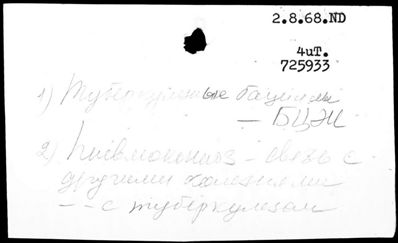 2.8.68.ND
4иТ.
725933
1) Туберкулезные бациллы
— БЦЖ
2) Пневмокониоз - связь с
другими болезнями
-- с туберкулезом